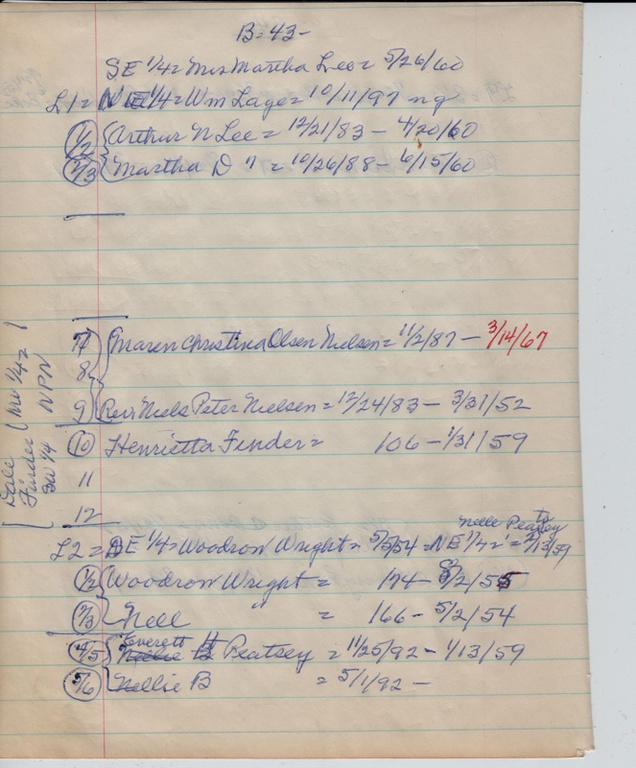 B-43-
SE 1/4= Mrs Martha Lee= 5/26/60
L1= N 1/4= Wm Lage= 10/11/97 ng
1/2 Arthur N Lee= 12/21/83 - 4/20/60
2/3 Martha D " = 10/26/88 - 6/15/60
7 Maren Christina Olsen Nielsen= 11/2/87 - 3/14/67
8
9 Rev Niels Peter Nielsen= 12/24/83 - 3/31/52
10 Henrietta Finder= 106 - 1/31/59
11
12
Dale Finder
NW 1/4=
SW 1/4
NPN
Nelle Peatsey
L2= SE 1/4= Woodron Wright= 5/5/54 = NE 1/4=
1/2 Woodron Wright= 174- 8/2/55
2/3 Nell " = 166- 5/2/54
4/5 Everett H Peatsey = 11/25/92 - 1/13/59
5/6 Nellie B = 5/1/92 -